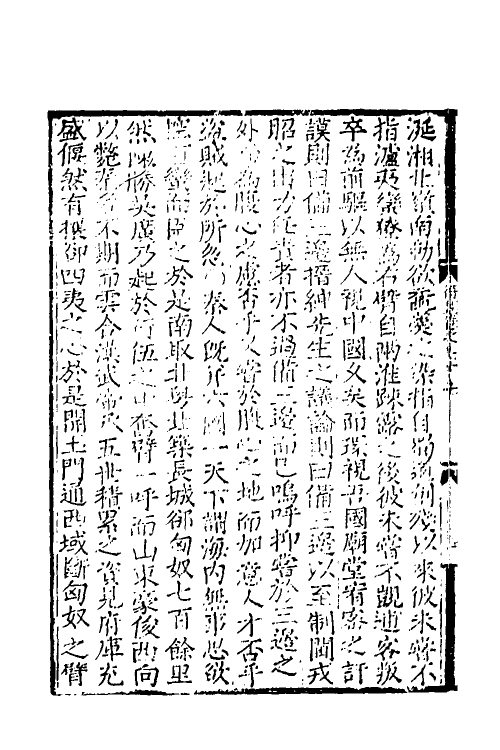 涎湘北嶺南勃欲  之染指自蜀道 殘以來彼未嘗不
指瀘夷蠻獠為右臂自兩淮踈露之後彼未嘗不覬逋客叛
卒為前驅以無人視中國久矣而環視吾國廟堂宥密之訏
謨則曰備三邊搢紳先生之議論則曰備三邊以至制閫戎
昭之出 任責者亦不過備三邊而已嗚呼抑嘗於三邊之
外 為腹心之慮否乎又嘗於腹心之地而加意人才否乎
 賊起於所忽 秦人既并六國一天下謂海內無事思欲
 百蠻而臣之於是南取北粵北築長城卻匈奴七百餘里
然陳勝吳廣乃起於行伍之中奮臂一呼而山東豪俊西向
以斃秦者不期而雲合漢武帝承五世積累之資見府庫充
盛偃然有攘卻四夷之心於是開土門通西域斷匈奴之臂